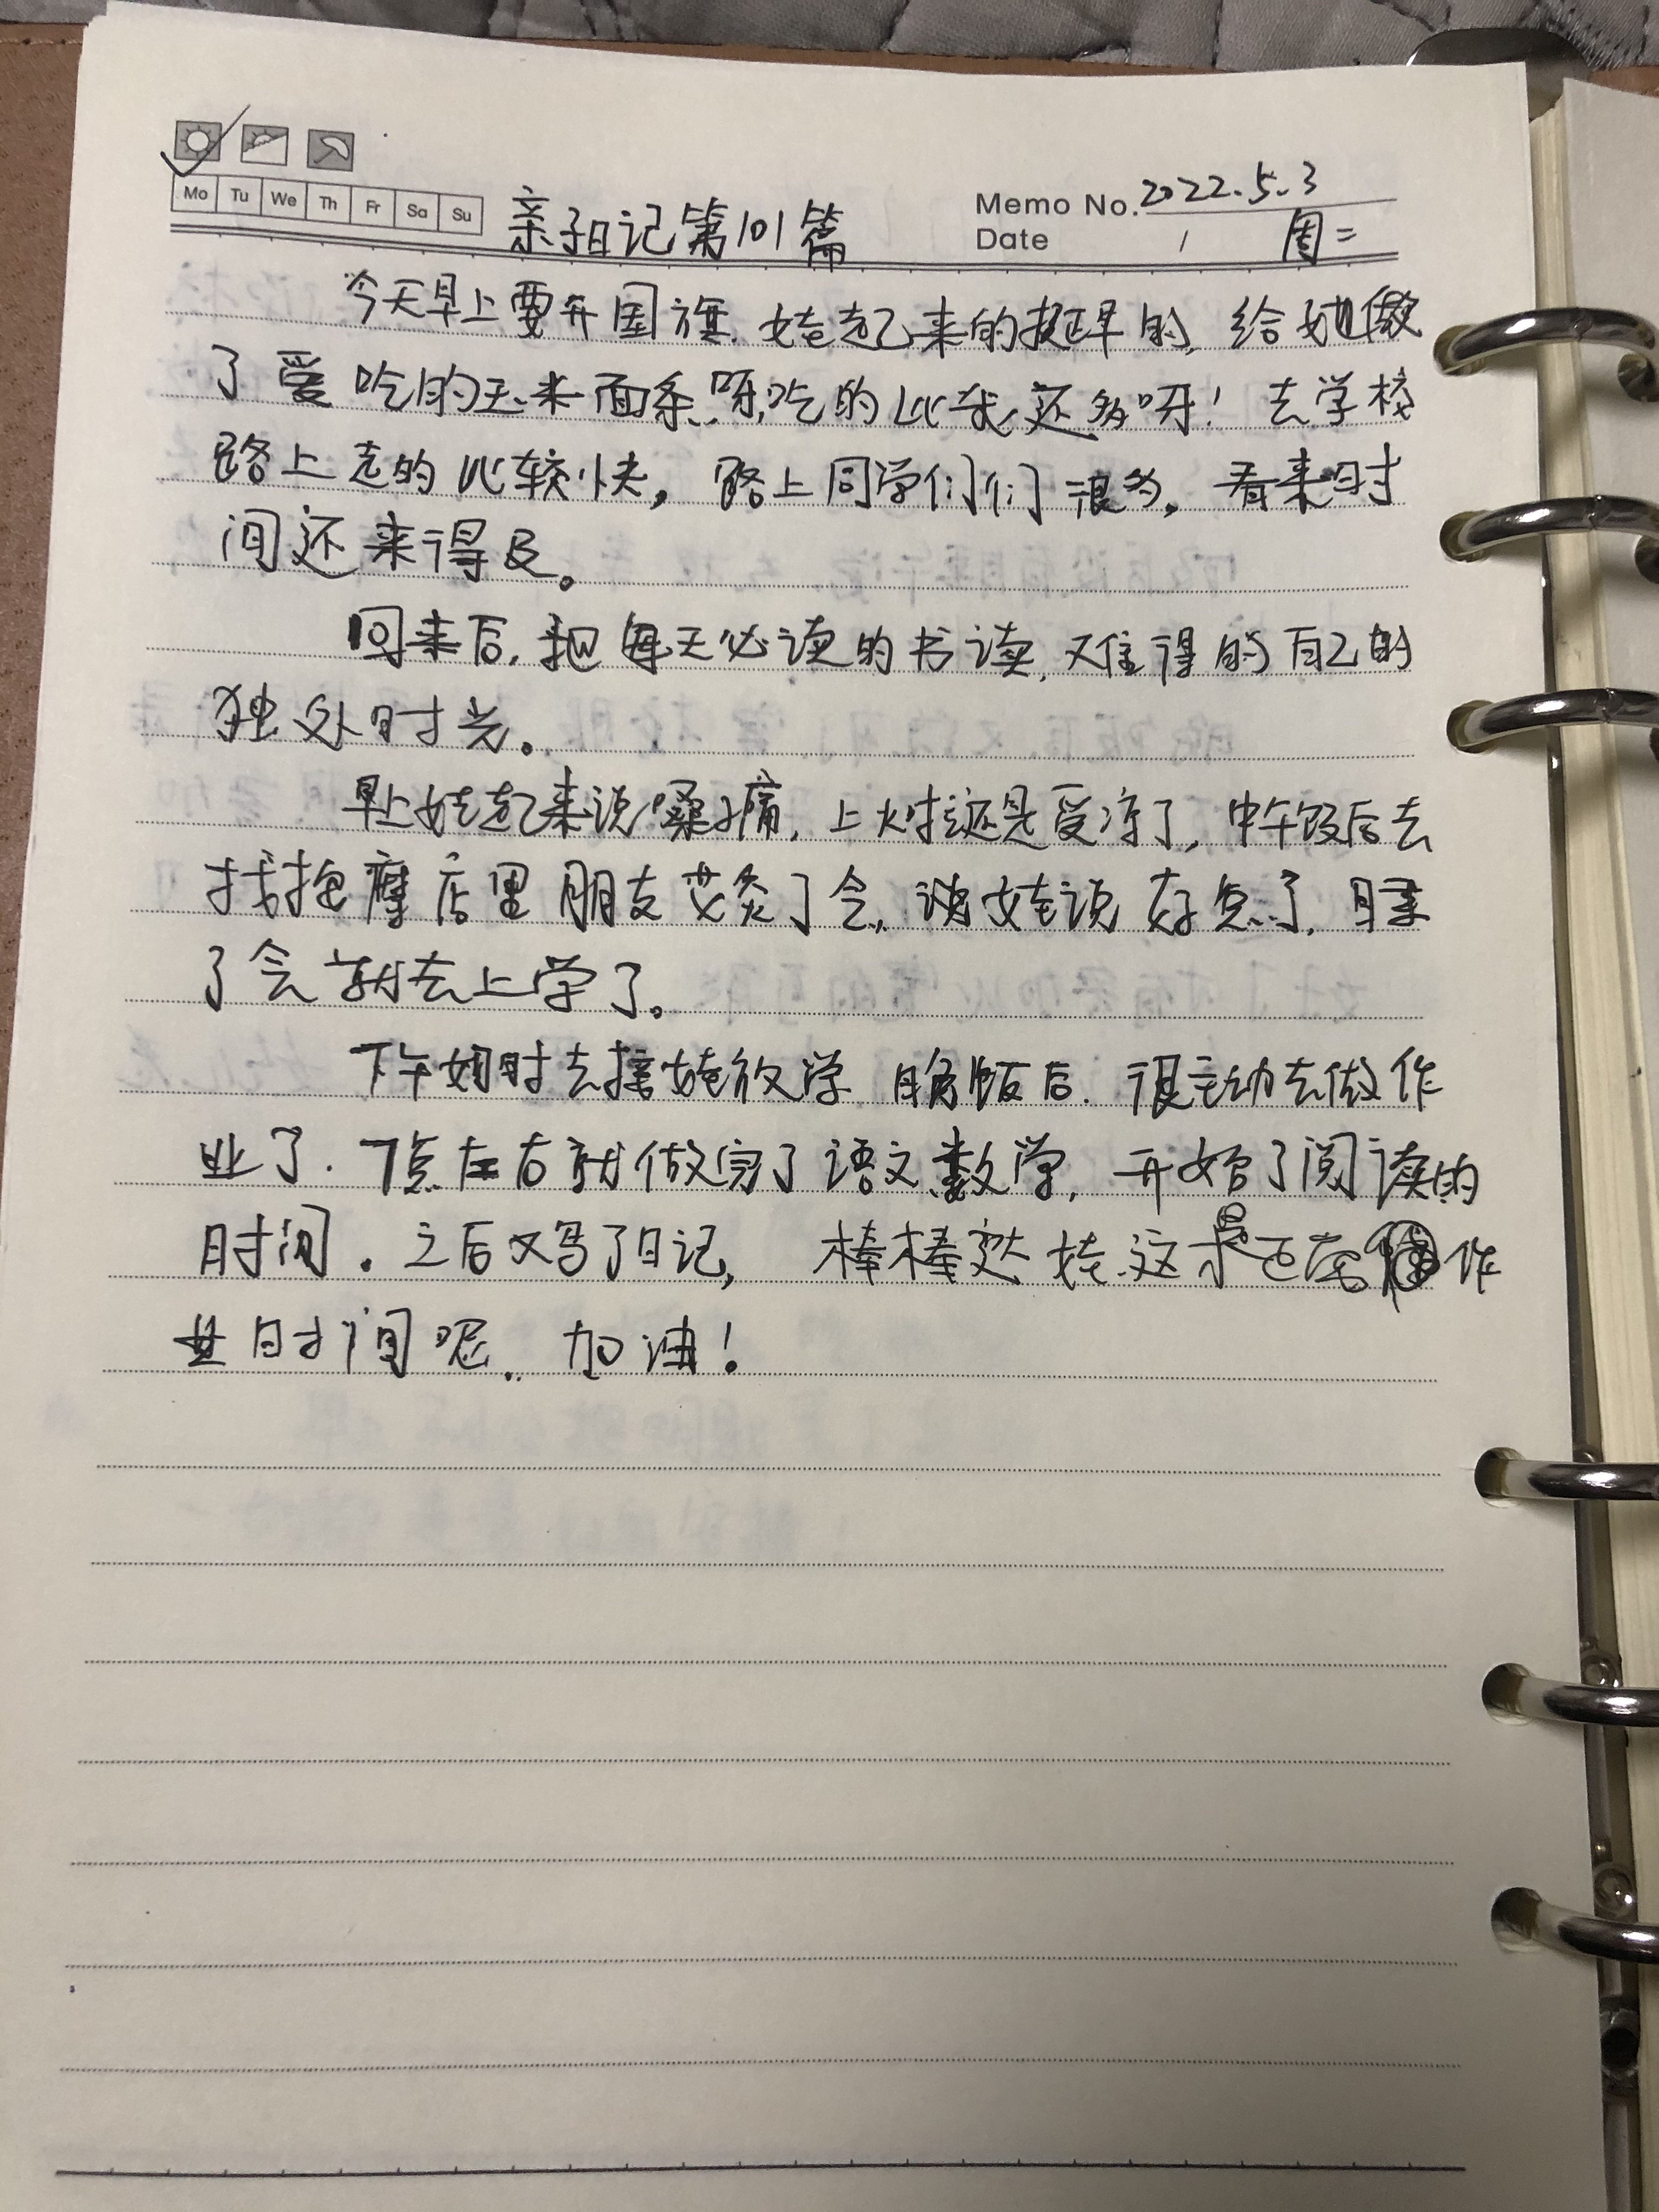 Mo Tu We Th Fr Sa Su
亲子日记第101篇
Memo No. 2022.5.3
Date / 周二
今天早上要升国旗.娃起来的挺早的,给她做
了爱吃的玉米面条呀,吃的比我还多呀!去学校
路上走的比较快,路上同学们们很多,看来时
间还来得及。
回来后,把每天必读的书读,难得的自己的
独处时光。
早上娃起来说嗓子痛,上火还是受凉了,中午饭后去
找按摩店里朋友艾灸了会,娃说好点了,睡
了会就去上学了。
下午姐时去接娃放学 晚饭后.很主动去做作
业了.7点左右就做完了语文数学,开始了阅读的
时间.之后又写了日记,棒棒哒娃.这是还在作
业时间呢..加油!